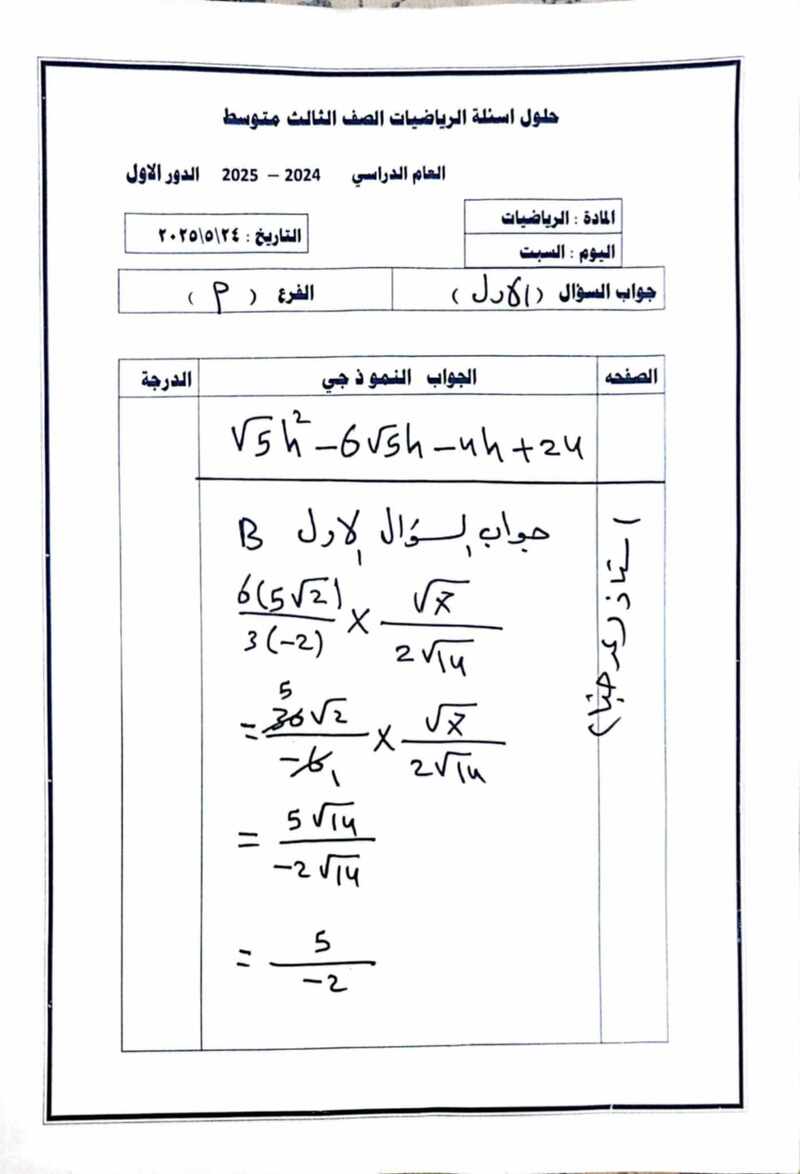 حلول اسئلة الرياضيات الصف الثالث متوسط
العام الدراسي 2024 – 2025 الدور الاول
المادة : الرياضيات
اليوم : السبت
التاريخ : ٢٠٢٥\٥\٢٤
جواب السؤال (الاول) الفرع ( م )
الصفحه الجواب النموذجي الدرجة
√5h² - 6√5h - 4h + 24
جواب السؤال الاول B
6(5√2)/3(-2) × √7/2√14
= 30√2/-6 × √7/2√14
5
1
= 5√14/-2√14
= 5/-2
استاذ رعد